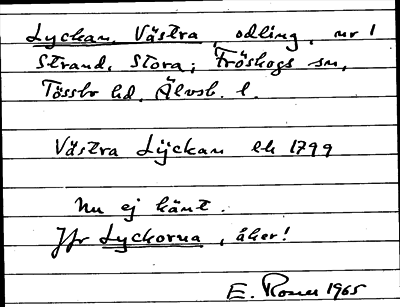 Lyckan, Västra, odling, nr 1
Strand, Stora; Fröskogs sn,
Tössbo hd, Älvsb. l.
Västra Lÿckan lh 1799
Nu ej känt.
Jfr Lyckorna, åker!
E. Rosen 1965